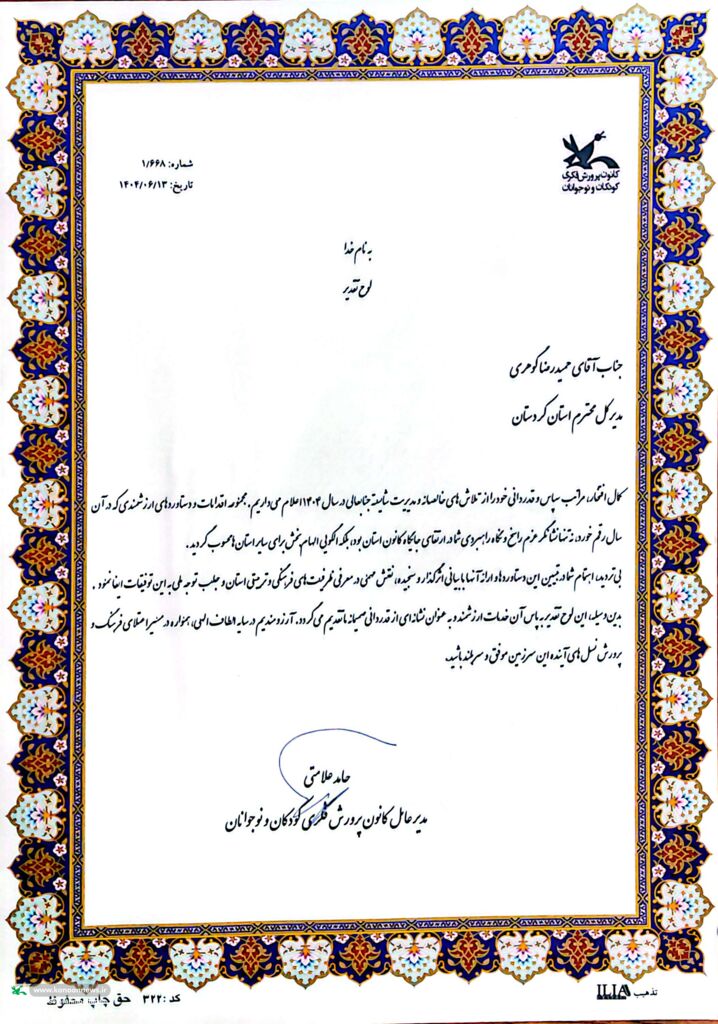 کانون پرورش فکری
کودکان و نوجوانان
شماره: ۱/۶۶۸
تاریخ: ۱۴۰۴/۰۶/۱۳
به نام خدا
لوح تقدیر
جناب آقای حمیدرضا گوهری
مدیرکل محترم استان کردستان
کمال افتخار، مراتب سپاس و قدردانی خود را از تلاش‌های خالصانه و مدیریت شایسته جنابعالی در سال ۱۴۰۴ اعلام می‌داریم. مجموعه اقدامات و دستاوردهای ارزشمندی که در آن
سال رقم خورد، نه تنها نشانگر عزم راسخ و نگاه راهبردی شما در ارتقای جایگاه کانون استان بود، بلکه الگویی الهام‌بخش برای سایر استان‌ها محسوب گردید.
بی‌تردید، اهتمام شما در تبیین این دستاوردها و ارائه آنها با بیانی اثرگذار و سنجیده، نقش مهمی در معرفی ظرفیت‌های فرهنگی و تربیتی استان و جلب توجه ملی به این توفیقات ایفا نمود.
بدین وسیله، این لوح تقدیر به پاس آن خدمات ارزشمند و به عنوان نشانه‌ای از قدردانی صمیمانه ما تقدیم می‌گردد. آرزومندیم در سایه الطاف الهی، همواره در مسیر اعتلای فرهنگ و
پرورش نسل‌های آینده این سرزمین موفق و سربلند باشید.
حامد علامتی
مدیرعامل کانون پرورش فکری کودکان و نوجوانان
www.kanoonnews.ir
کد: ۳۲۲ حق چاپ محفوظ
تذهیب ILIA